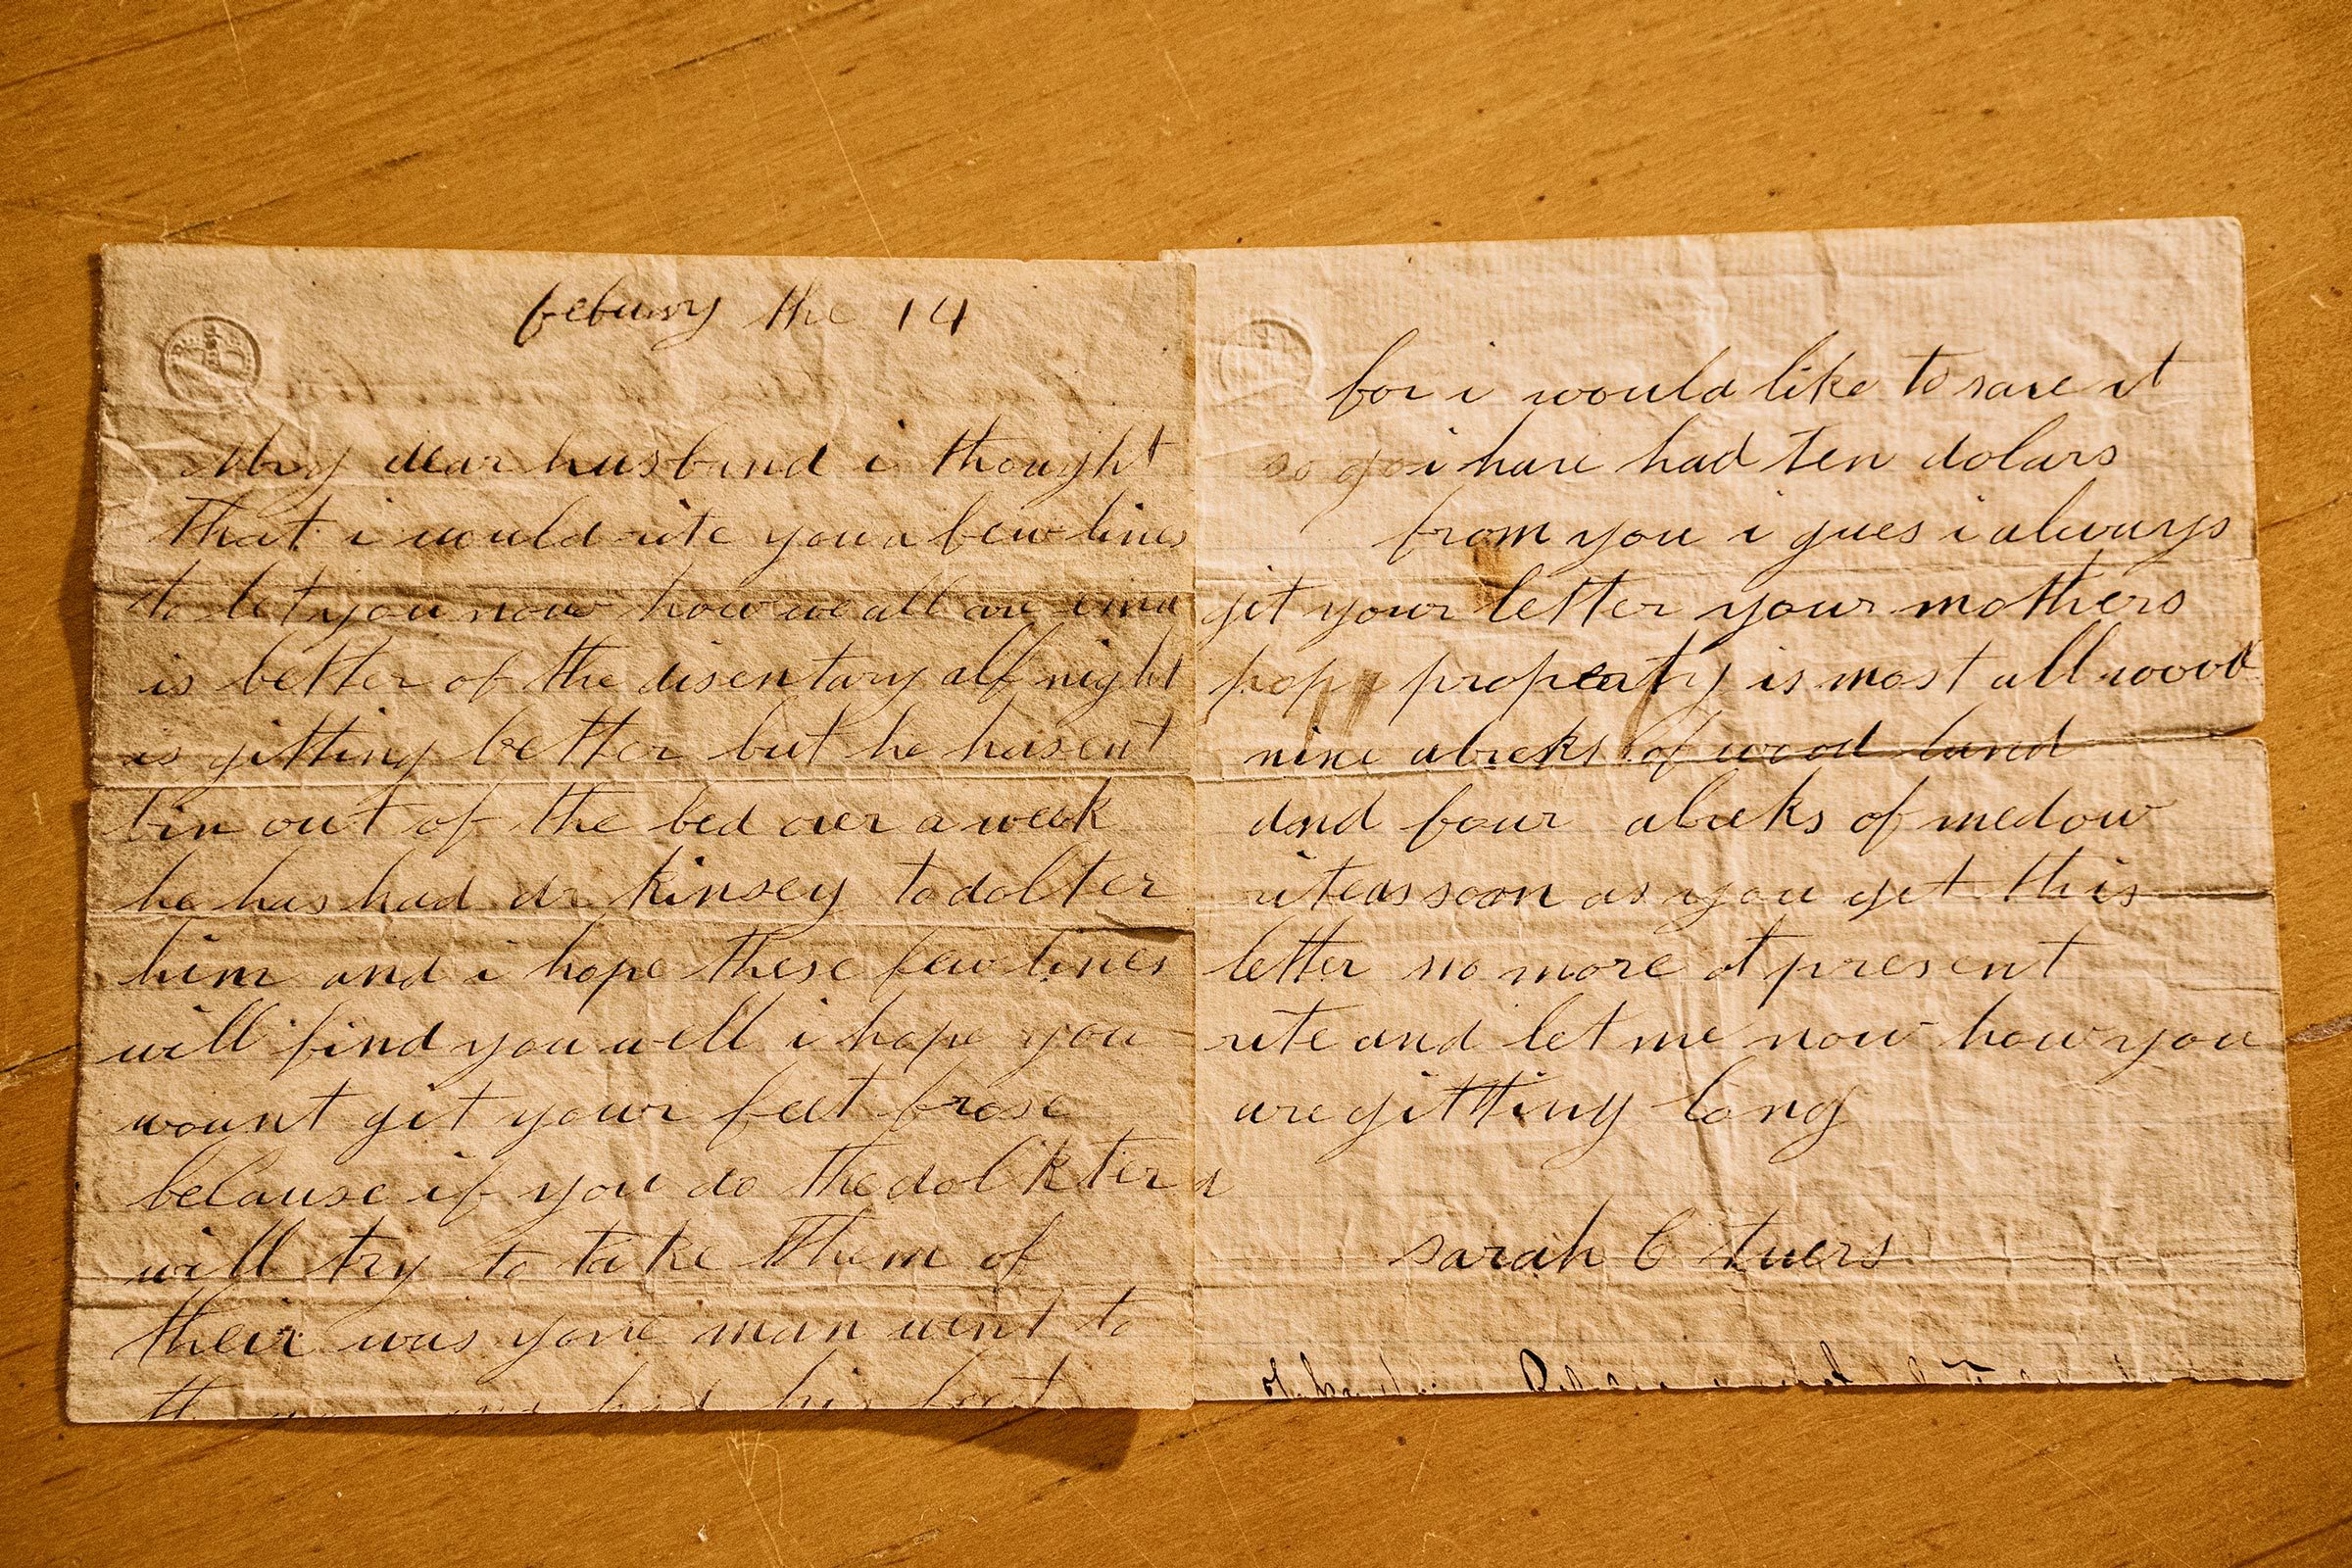 febuary the 14
My dear husband i thought
that i would rite you a few lines
to let you now how we all are
is better of the disentary alf night
is gitting better but he hasent
bin out of the bed over a weak
he has had dr kinsey to docter
him and i hope these few lines
will find you well i hope you
wount git your feet frose
because if you do the dockters
will try to take them of
their was yone man went to
had his feet
for i would like to save it
so go i have had ten dolars
from you i gues i always
git your letter your mothers
pop property is most all wood
nine acreks of wood land
and four acreks of medow
rite as soon as you get this
letter no more at present
rite and let me now how you
are gitting long
sarah C tuers